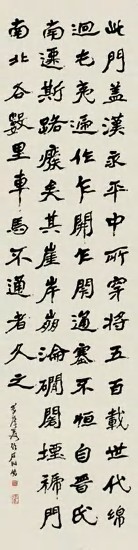 此門蓋漢永平中所穿將五百載世代
迴屯夷遞作乍開乍閉通塞不恒自晉氏
南遷斯路廢矣其崖岸崩淪磵閣堙褫門
南北各數里車馬不通者久之